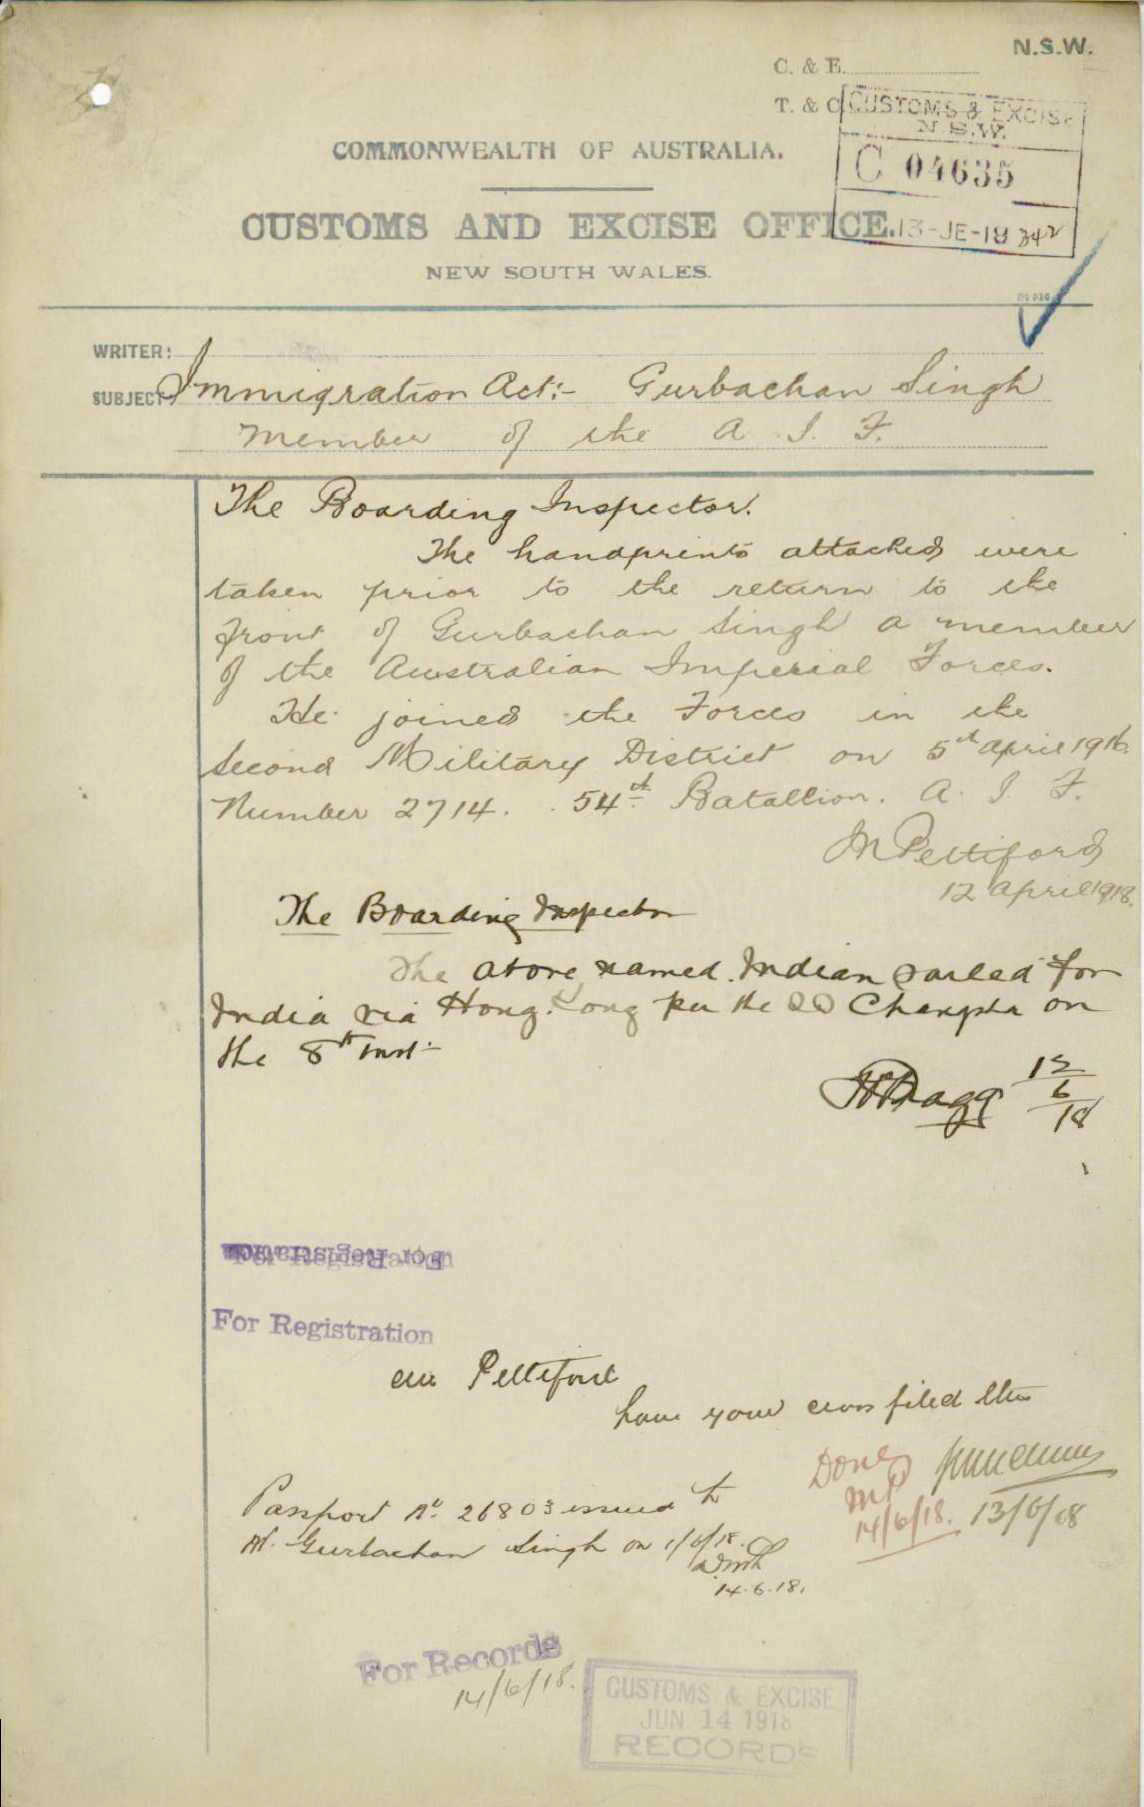 N.S.W.
C. & E.
T. & C.
CUSTOMS & EXCISE
N.S.W.
C 04635
13-JE-18 342
COMMONWEALTH OF AUSTRALIA.
CUSTOMS AND EXCISE OFFICE.
NEW SOUTH WALES.
WRITER:
SUBJECT: Immigration Act:- Gurbachan Singh
member of the A. I. F.
The Boarding Inspector.
The handprints attached were
taken prior to the return to the
front of Gurbachan Singh a member
of the Australian Imperial Forces.
He joined the Forces in the
Second Military District on 5th April 1916.
Number 2714. 54th Batallion. A. I. F.
M Pettiford
12 April 1918.
The Boarding Inspector
The above named Indian sailed for
India via Hong Kong per the SS Changsha on
the 8th inst-
12/6/18
For Registration
For Registration
Pettiford
have your cross filed
Done
MP
14/6/18.
13/6/18
Passport No. 26803 issued to
Gurbachan Singh on 1/6/18.
14.6.18.
For Records
14/6/18.
CUSTOMS & EXCISE
JUN 14 1918
RECORDS